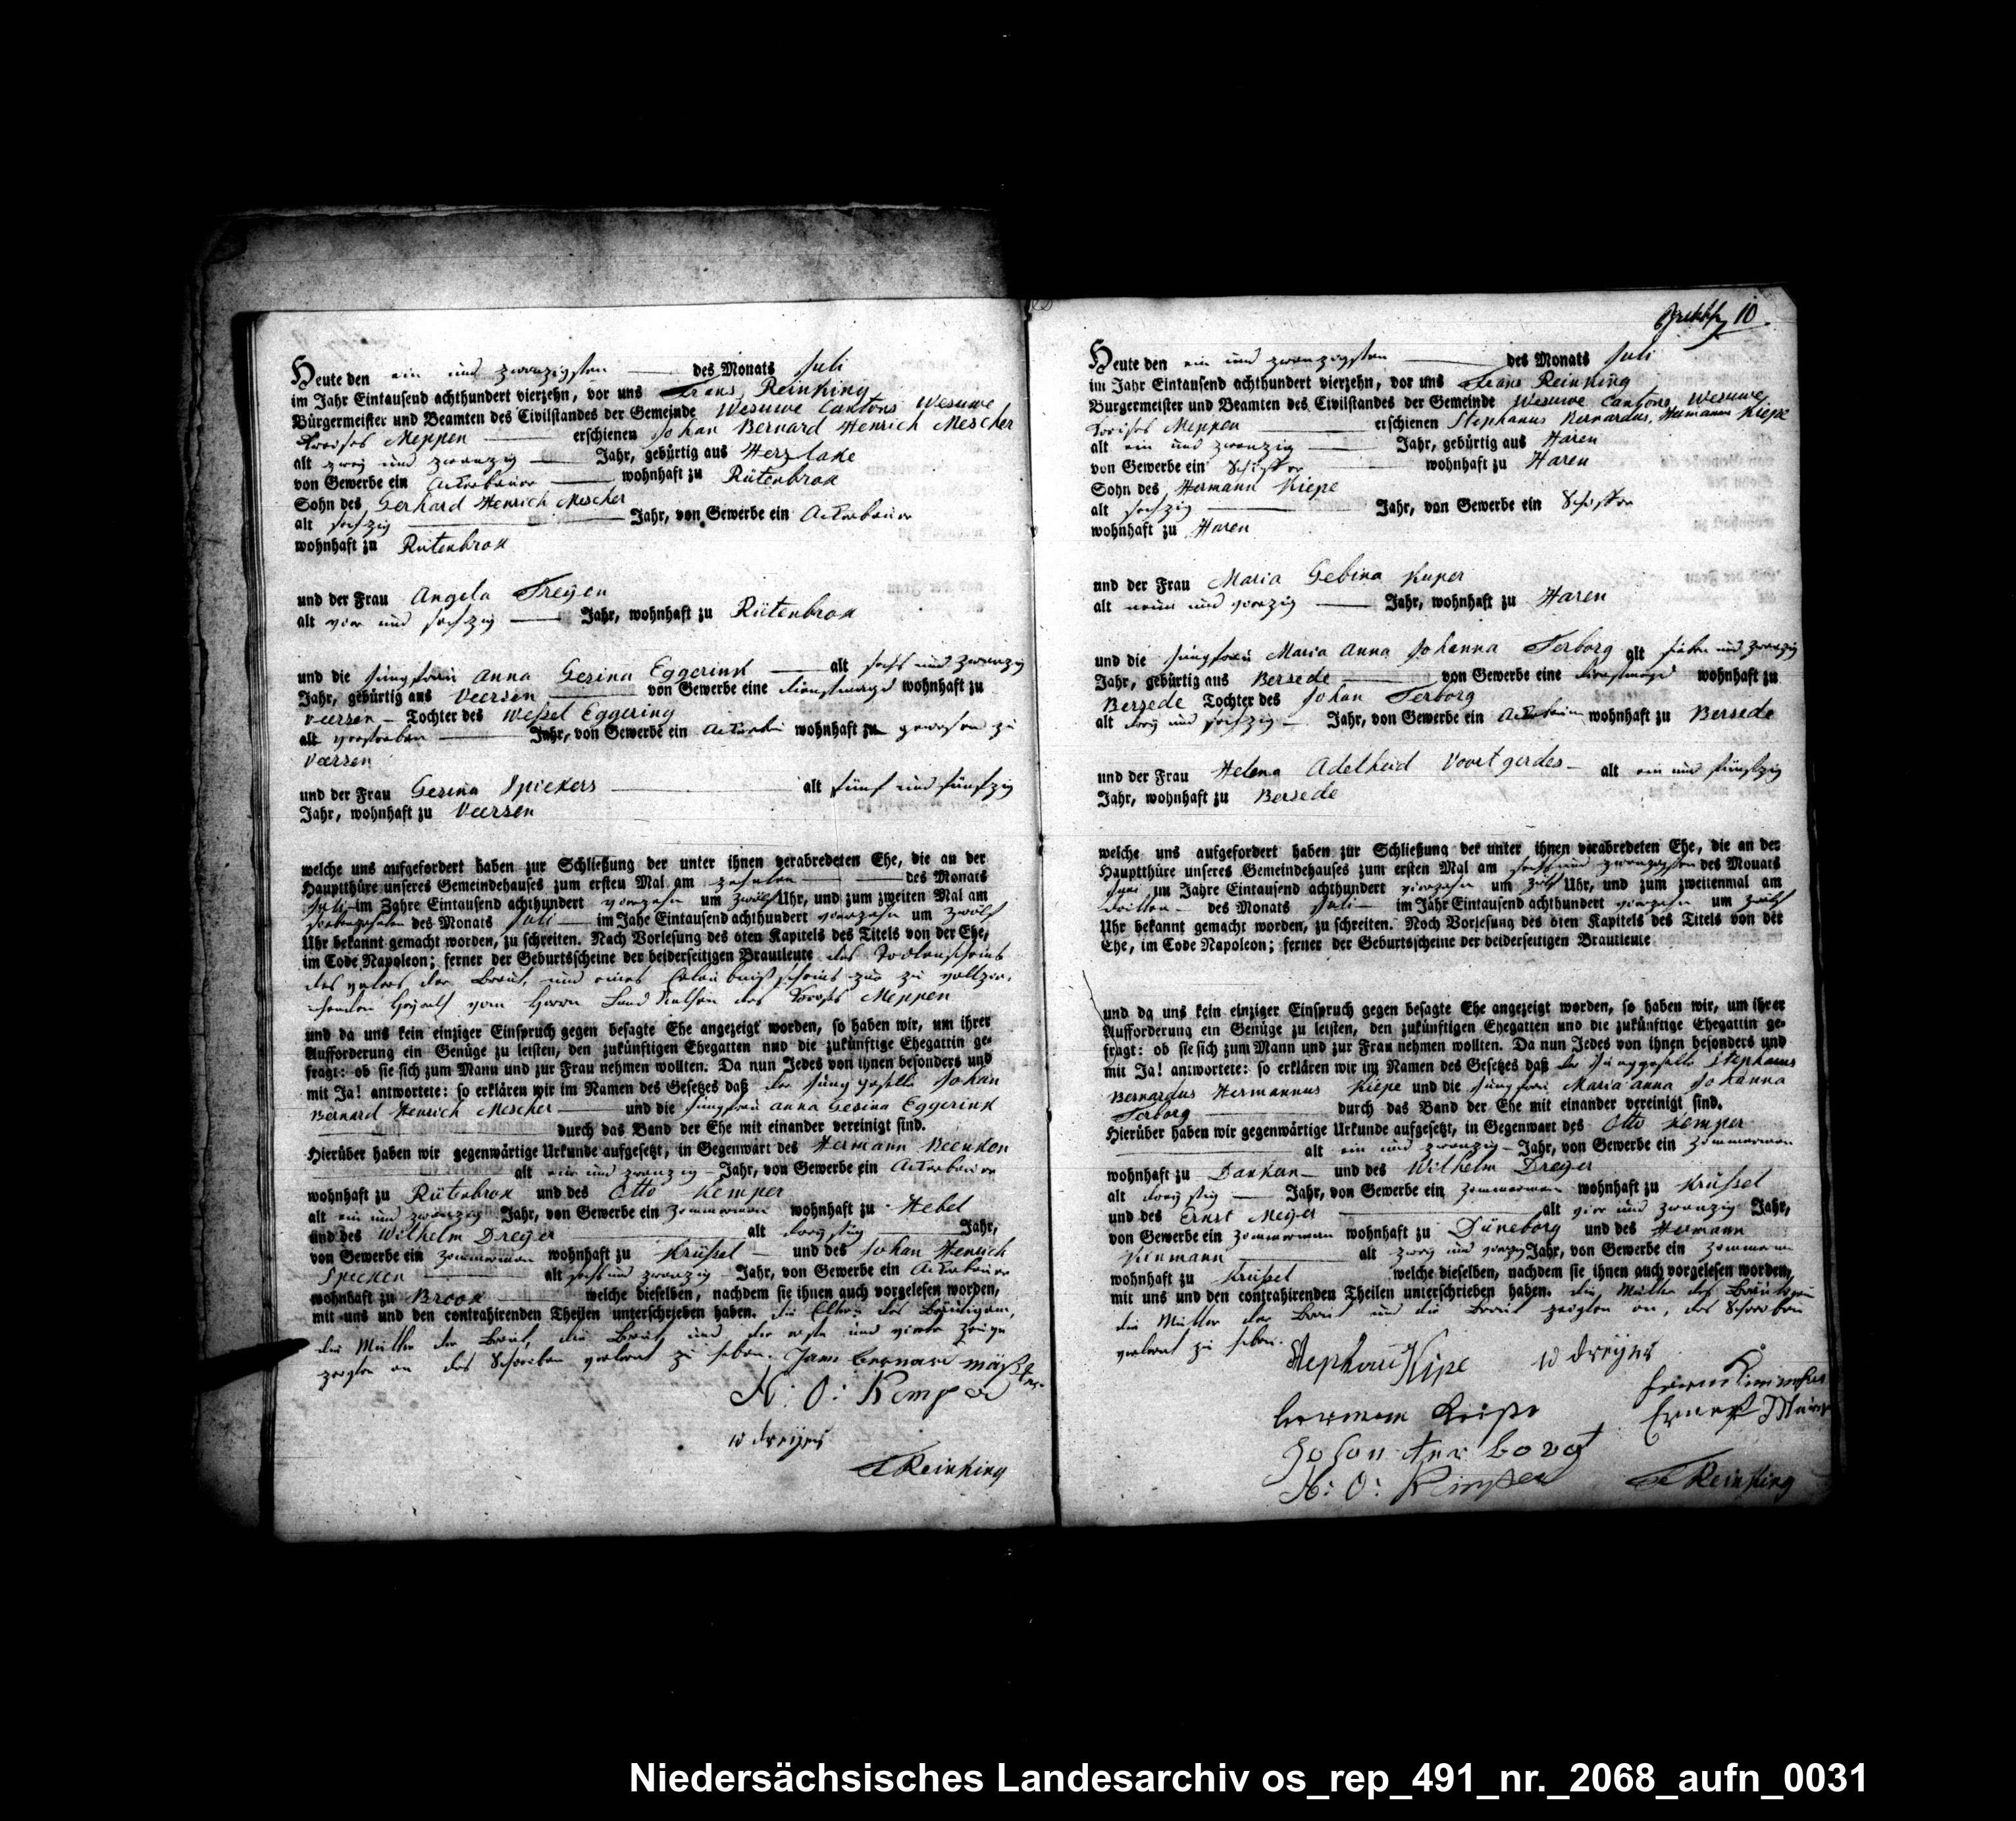 Heute den ein und zwanzigsten des Monats Juli
im Jahr Eintausend achthundert vierzehn, vor uns Frans Reinking
Bürgermeister und Beamten des Civilstandes der Gemeinde Wesuwe Cantons Wesuwe
Kreises Meppen erschienen Johan Bernard Henrich Mescher
alt zwey und zwanzig Jahr, gebürtig aus Herzlake
von Gewerbe ein Ackerbauer wohnhaft zu Rütenbrok
Sohn des Gerhard Henrich Mescher
alt sechzig Jahr, von Gewerbe ein Ackerbauer
wohnhaft zu Rütenbrok
und der Frau Angela Freyen
alt vier und sechzig Jahr, wohnhaft zu Rütenbrok
und die Jungfrau Anna Gesina Eggerink alt sechs und zwanzig
Jahr, gebürtig aus Veersen von Gewerbe eine Dienstmagd wohnhaft zu
Veersen Tochter des Wessel Eggering
alt verstorben Jahr, von Gewerbe ein wohnhaft zu gewesen zu
Veersen
und der Frau Gesina Spiekers alt fünf und fünfzig
Jahr, wohnhaft zu Veersen
welche uns aufgefordert haben zur Schließung der unter ihnen verabredeten Ehe, die an der
Hauptthüre unseres Gemeindehauses zum ersten Mal am zehnten des Monats
Juli im Jahre Eintausend achthundert vierzehn um zwölf Uhr, und zum zweiten Mal am
siebenzehnten des Monats Juli im Jahe Eintausend achthundert vierzehn um zwölf
Uhr bekannt gemacht worden, zu schreiten. Nach Vorlesung des 6ten Kapitels des Titels von der Ehe,
im Code Napoleon; ferner der Geburtsscheine der beiderseitigen Brautleute des Todtenscheins
des Vaters der Braut, und eines Erlaubnißscheins zur zu vollzie-
henden Heyrath vom Herrn des Kreises Meppen
und da uns kein einziger Einspruch gegen besagte Ehe angezeigt worden, so haben wir, um ihrer
Aufforderung ein Genüge zu leisten, den zukünftigen Ehegatten und die zukünftige Ehegattin ge-
fragt: ob sie sich zum Mann und zur Frau nehmen wollten. Da nun Jedes von ihnen besonders und
mit Ja! antwortete: so erklären wir im Namen des Gesetzes daß der Junggeselle Johan
Bernard Henrich Mescher und die Jungfrau Anna Gesina Eggerink
durch das Band der Ehe mit einander vereinigt sind.
Hierüber haben wir gegenwärtige Urkunde aufgesetzt, in Gegenwart des Hermann Beenken
alt ein und zwanzig Jahr, von Gewerbe ein Ackerbauer
wohnhaft zu Rütenbrok und des Otto Kemper
alt ein und zwanzig Jahr, von Gewerbe ein Zimmerman wohnhaft zu Hebel
und des Wilhelm Dreyer alt dreyssig Jahr,
von Gewerbe ein Zimmerman wohnhaft zu Krüssel und des Johan Henrich
Specken alt sechs und zwanzig Jahr, von Gewerbe ein Ackerbauer
wohnhaft zu Brook welche dieselben, nachdem sie ihnen auch vorgelesen worden,
mit uns und den contrahirenden Theilen unterschrieben haben. die Eltern des Bräutigam,
die Mutter der Braut, die Braut und der erste und vierte Zeuge
zeigten an des Schreiben verlernt zu haben.
H: O: Kemper
W Dreyer
F Reinking
10
Heute den ein und zwanzigsten des Monats Juli
im Jahr Eintausend achthundert vierzehn, vor uns Frans Reinking
Bürgermeister und Beamten des Civilstandes der Gemeinde Wesuwe Cantons Wesuwe
Kreises Meppen erschienen Stephanus Bernardus Hermannus Kiepe
alt ein und zwanzig Jahr, gebürtig aus Haren
von Gewerbe ein Schiffer wohnhaft zu Haren
Sohn des Hermann Kiepe
alt sechzig Jahr, von Gewerbe ein Schiffer
wohnhaft zu Haren
und der Frau Maria Gebina Kuper
alt neun und vierzig Jahr, wohnhaft zu Haren
und die Jungfrau Maria Anna Johanna Terborg alt sieben und zwanzig
Jahr, gebürtig aus Bersede von Gewerbe eine Dienstmagd wohnhaft zu
Bersede Tochter des Johan Terborg
alt drey und sechzig Jahr, von Gewerbe ein wohnhaft zu Bersede
und der Frau Helena Adelheid Voortgerdes alt ein und fünfzig
Jahr, wohnhaft zu Bersede
welche uns aufgefordert haben zur Schließung der unter ihnen verabredeten Ehe, die an der
Hauptthüre unseres Gemeindehauses zum ersten Mal am sechs und zwanzigsten des Monats
Juni im Jahre Eintausend achthundert vierzehn um zwölf Uhr, und zum zweitenmal am
dritten des Monats Juli im Jahr Eintausend achthundert vierzehn um zwölf
Uhr bekannt gemacht worden, zu schreiten. Noch Vorlesung des 6ten Kapitels des Titels von der
Ehe, im Code Napoleon; ferner der Geburtsscheine der beiderseitigen Brautleute
und da uns kein einziger Einspruch gegen besagte Ehe angezeigt worden, so haben wir, um ihrer
Aufforderung ein Genüge zu leisten, den zukünftigen Ehegatten und die zukünftige Ehegattin ge-
fragt: ob sie sich zum Mann und zur Frau nehmen wollten. Da nun Jedes von ihnen besonders und
mit Ja! antwortete: so erklären wir im Namen des Gesetzes daß der Junggeselle Stephanus
Bernardus Hermannus Kiepe und die Jungfrau Maria Anna Johanna
Terborg durch das Band der Ehe mit einander vereinigt sind.
Hierüber haben wir gegenwärtige Urkunde aufgesetzt, in Gegenwart des Otto Kemper
alt ein und zwanzig Jahr, von Gewerbe ein Zimmerman
wohnhaft zu Dankern und des Wilhelm Dreyer
alt dreyssig Jahr, von Gewerbe ein Zimmerman wohnhaft zu Krüssel
und des Ernst Meyer alt vier und zwanzig Jahr,
von Gewerbe ein Zimmerman wohnhaft zu Düneborg und des Hermann
Kinmann alt zwey und vierzig Jahr, von Gewerbe ein Zimmerman
wohnhaft zu Krüssel welche dieselben, nachdem sie ihnen auch vorgelesen worden,
mit uns und den contrahirenden Theilen unterschrieben haben. die Mutter des Bräutigam
die Mutter der Braut und die Braut zeigten an, des Schreiben
verlernt zu haben.
Stephan Kipe W Dreyer
Johan ter borgt
H: O: Kemper F Reinking
Niedersächsisches Landesarchiv os_rep_491_nr._2068_aufn_0031